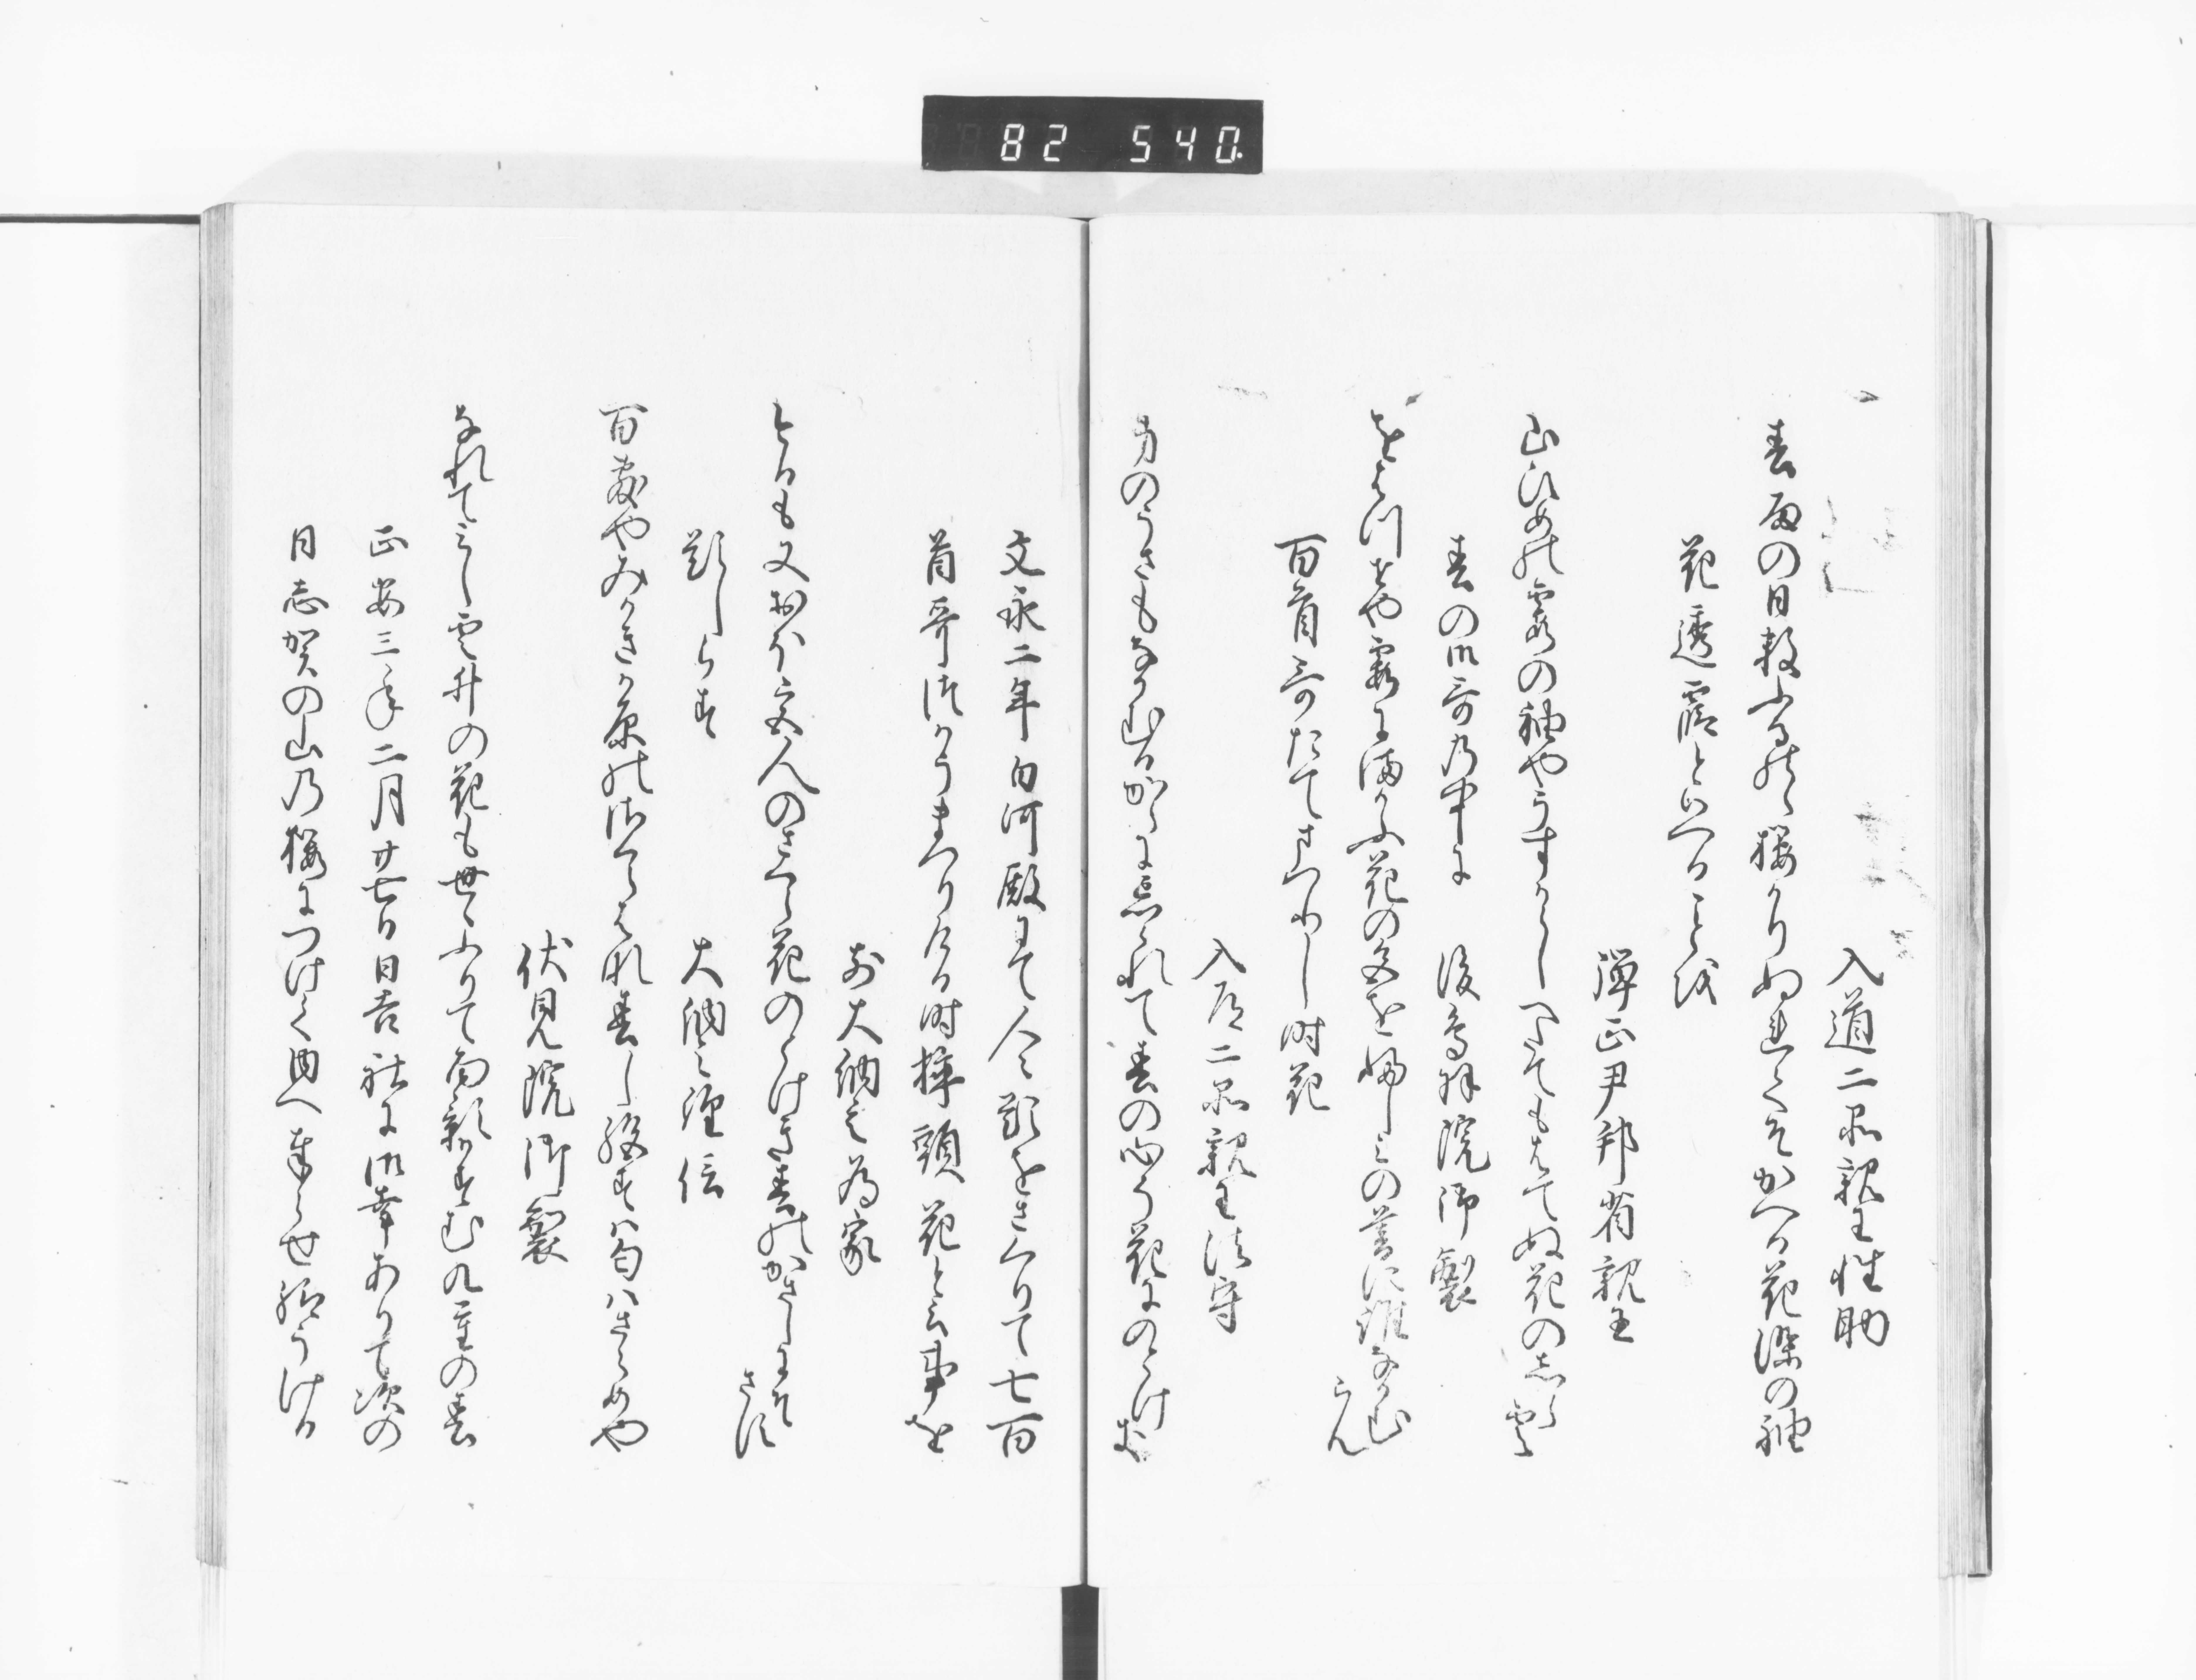 82 540
入道二品親王性助
春雨の日数ふるのゝ桜かりぬれてそかへる花染の袖
花透霞といへることを
弾正尹邦省親王
山ひめの霞の袖やうすからしへたてもはてぬ花のしら雲
春の御哥乃中に
後鳥羽院御製
をはつせや霞にまかふ花の色をふしみの暮に誰なかむ
らん
百首哥たてまつりし時花
入道二品親王法守
身のうさもなかむるからに忘られて春の心う花にのとけ
き
文永二年白河殿にて人々題をさくりて七百
首哥つかうまつりける時挿頭花と云事を
前大納言為家
とるも又おほ宮人のさくら花のとけき春のかさしにそ
さす
題しらす
大納言経信
百敷やみかきか原のさくらはな春し絶すは匂はさらめや
伏見院御製
なれてみし雲井の花も世々ふりて面影かすむ九重の春
正安三年二月廿七日日吉社に御幸ありて次の
日志賀の山乃桜につけて内へまいらせ給うける